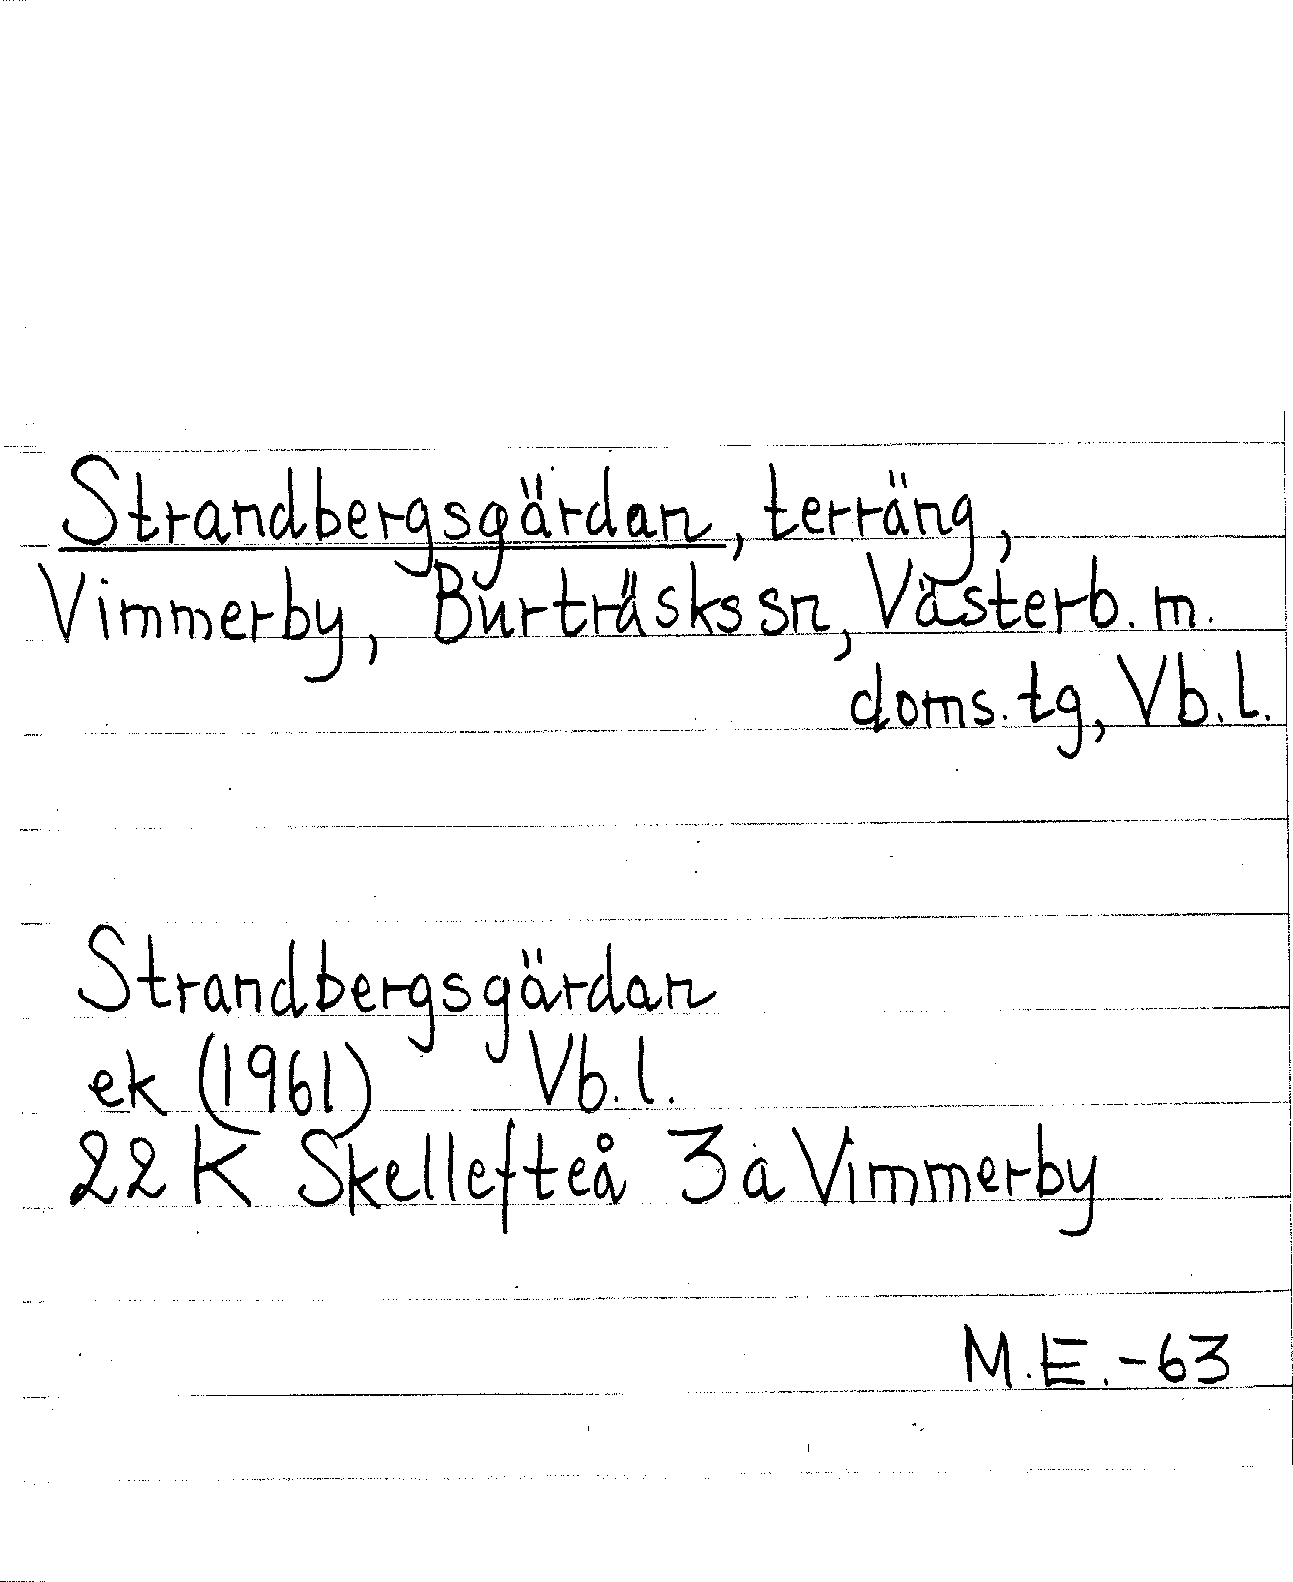 Strandbergsgärdan, terräng,
Vimmerby, Burträsks sn, Västerb. m.
doms. tg, Vb. l.
Strandbergsgärdan
ek (1961) Vb. l.
22 K Skellefteå 3 a Vimmerby
M.E.-63